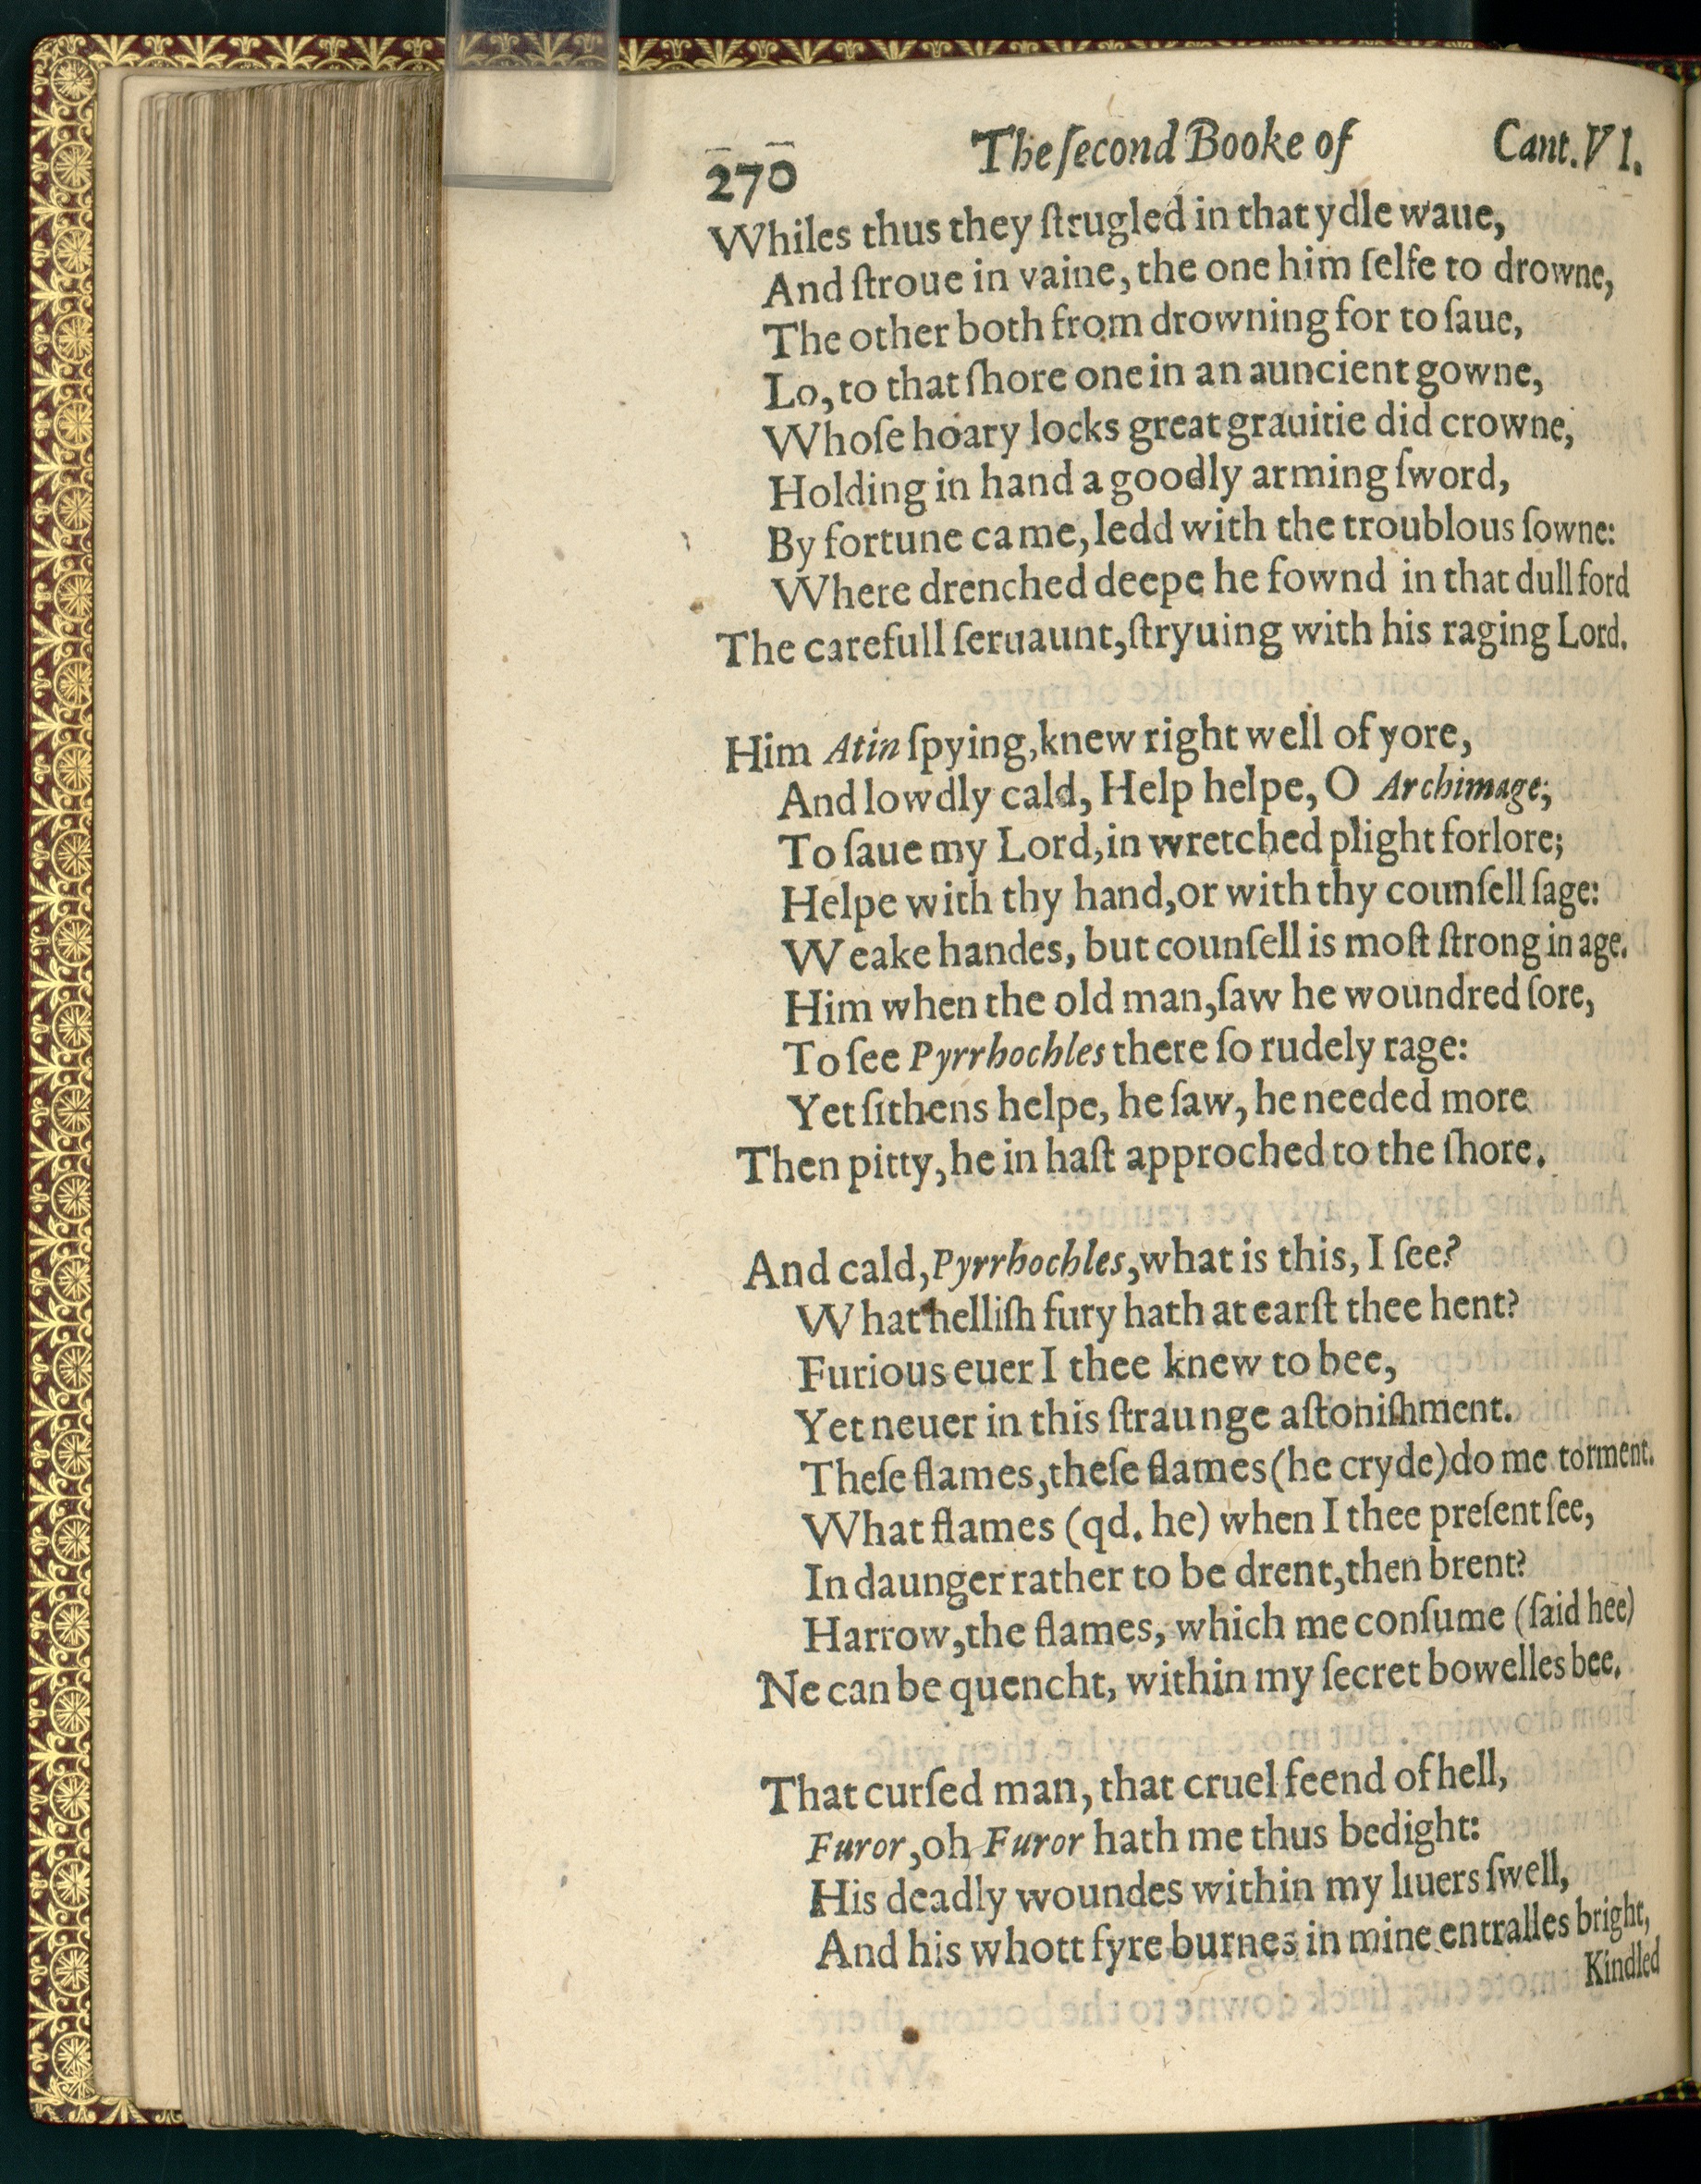 270 The ſecond Booke of Cant. VI.
Whiles thus they ſtrugled in that ydle waue,
And ſtroue in vaine, the one him ſelfe to drowne,
The other both from drowning for to ſaue,
Lo, to that ſhore one in an auncient gowne,
Whoſe hoary locks great grauitie did crowne,
Holding in hand a goodly arming ſword,
By fortune came, ledd with the troublous ſowne:
Where drenched deepe he fownd in that dull ford
The carefull ſeruaunt, ſtryuing with his raging Lord.
Him Atin ſpying, knew right well of yore,
And lowdly cald, Help helpe, O Archimage;
To ſaue my Lord, in wretched plight forlore;
Helpe with thy hand, or with thy counſell ſage:
Weake handes, but counſell is moſt ſtrong in age.
Him when the old man, ſaw he woundred ſore,
To ſee Pyrrhochles there ſo rudely rage:
Yet ſithens helpe, he ſaw, he needed more
Then pitty, he in haſt approched to the ſhore.
And cald, Pyrrhochles, what is this, I ſee?
What helliſh fury hath at earſt thee hent?
Furious euer I thee knew to bee,
Yet neuer in this ſtraunge aſtoniſhment.
Theſe flames, theſe flames (he cryde) do me torment.
What flames (qd. he) when I thee preſent ſee,
In daunger rather to be drent, then brent?
Harrow, the flames, which me conſume (ſaid hee)
Ne can be quencht, within my ſecret bowelles bee.
That curſed man, that cruel feend of hell,
Furor, oh Furor hath me thus bedight:
His deadly woundes within my liuers ſwell,
And his whott fyre burnes in mine entralles bright,
Kindled